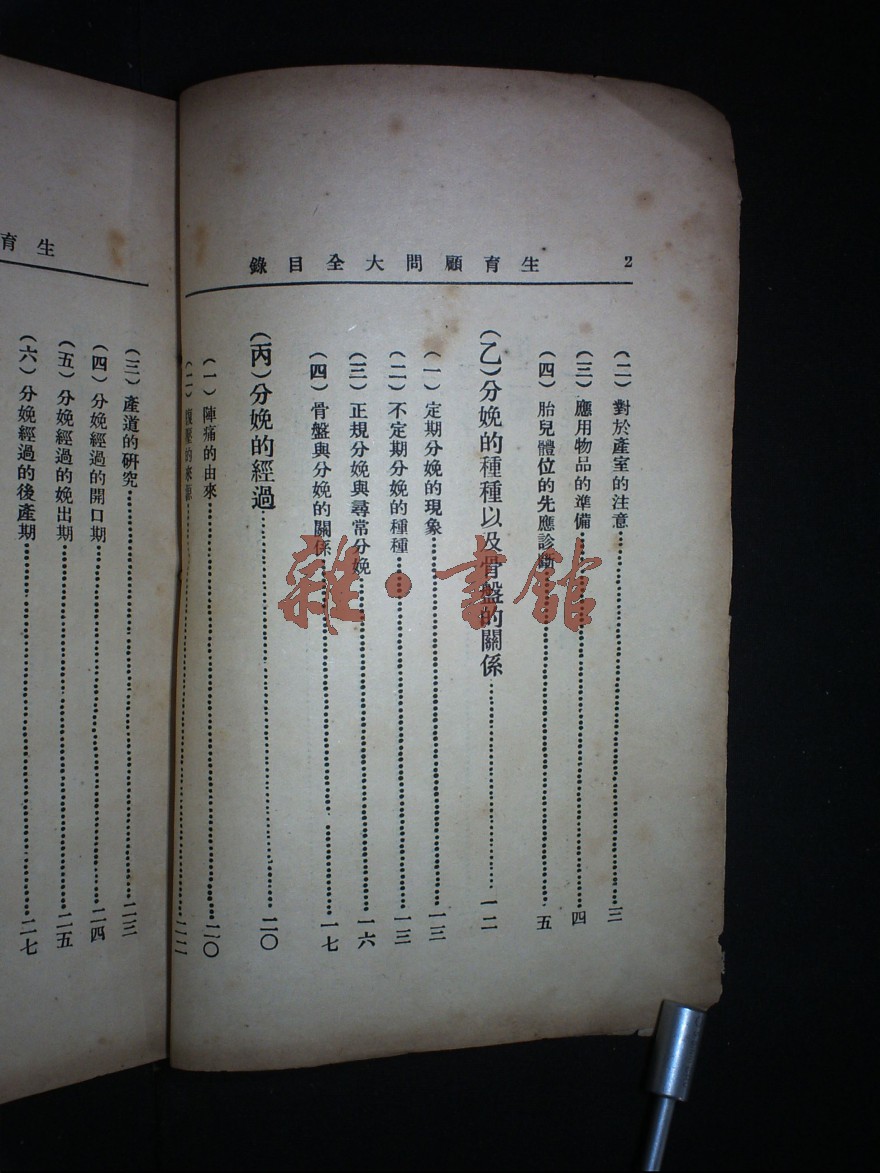 2 生育顧問大全目錄
(二)對於產室的注意……三
(三)應用物品的準備……四
(四)胎兒體位的先應診斷……五
(乙)分娩的種種以及骨盤的關係……一二
(一)定期分娩的現象……一三
(二)不定期分娩的種種……一三
(三)正規分娩與尋常分娩……一六
(四)骨盤與分娩的關係……一七
(丙)分娩的經過……二〇
(一)陣痛的由來……二〇
(二)腹壓的來源……二二
生育
(三)產道的研究……二三
(四)分娩經過的開口期……二四
(五)分娩經過的娩出期……二五
(六)分娩經過的後產期……二七
雜·書館